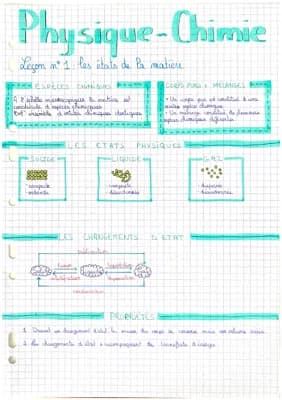 Physique-Chimie
Leçon n°1: les états de la matière
ESPÈCES CHIMIQUES
CORPS PURS & MÉLANGES
A l'échelle microscopique la matière est
constituée d'espèces chimiques
ensemble d'entités chimiques identiques.
• Un corps pur est constitué d'une
seule espèce chimique.
• Un mélange est constitué de plusieurs
espèces chimiques différentes.
LES ÉTATS PHYSIQUES
SOLIDE
LIQUIDE
GAZ
- compacte
- ordonnée
- compacte
- désordonnée
- dispersée
- désordonnée
LES CHANGEMENTS D'ÉTAT
sublimation
fusion
vaporisation
solide
liquide
gaz
solidification
liquéfaction
condensation
PROPRIÉTÉS
1. Durant un changement d'état, la masse du corps se conserve mais son volume varie.
2. Les changements d'état s'accompagnent de transferts d'énergie.